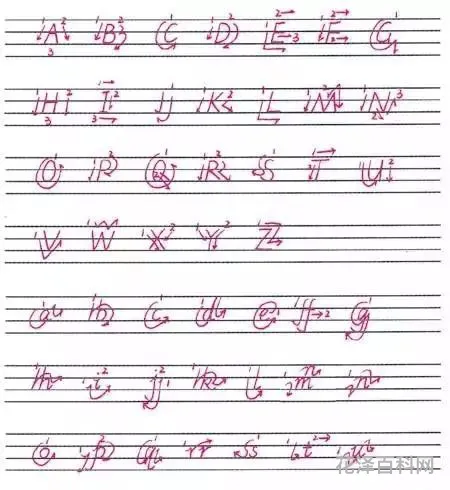 A B C D E F G
H I J K L M N
O P Q R S T U
V W X Y Z
a b c d e f g
h i j k l m n
o p q r s t u
花泽百科网